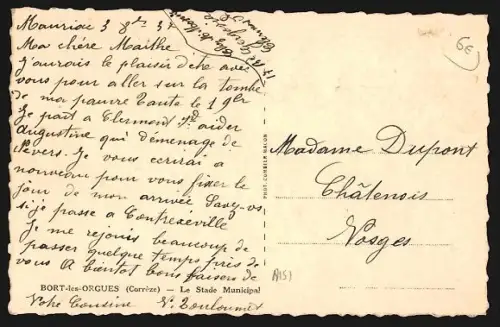 Mauriac 3 8bre 34
Ma chère Maithe
J'aurais le plaisir d'être avec
vous pour aller sur la tombe
de ma pauvre tante le 1 9bre
Je part a Clermont aider
augustine qui démenage de
Nevers. Je vous ecrirai a
nouveau pour vous fixer le
jour de mon arrivée Savez-vs
si je passe a Contrexéville
Je me rejouis beaucoup de
passer quelque temps près de
vous A bientot bons baisers de
Votre Cousine V. Toulounet
Chez
Clermont
Madame Dupont
Châtenois
Vosges
BORT-les-ORGUES (Corrèze) — Le Stade Municipal
6€
A151